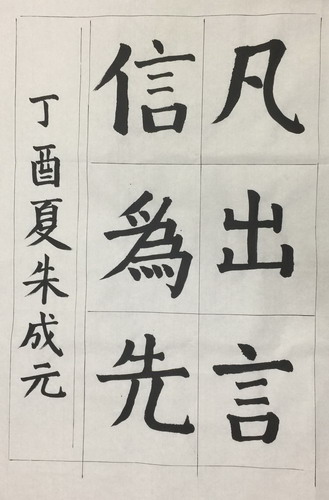 凡出言
信為先
丁酉夏朱成元